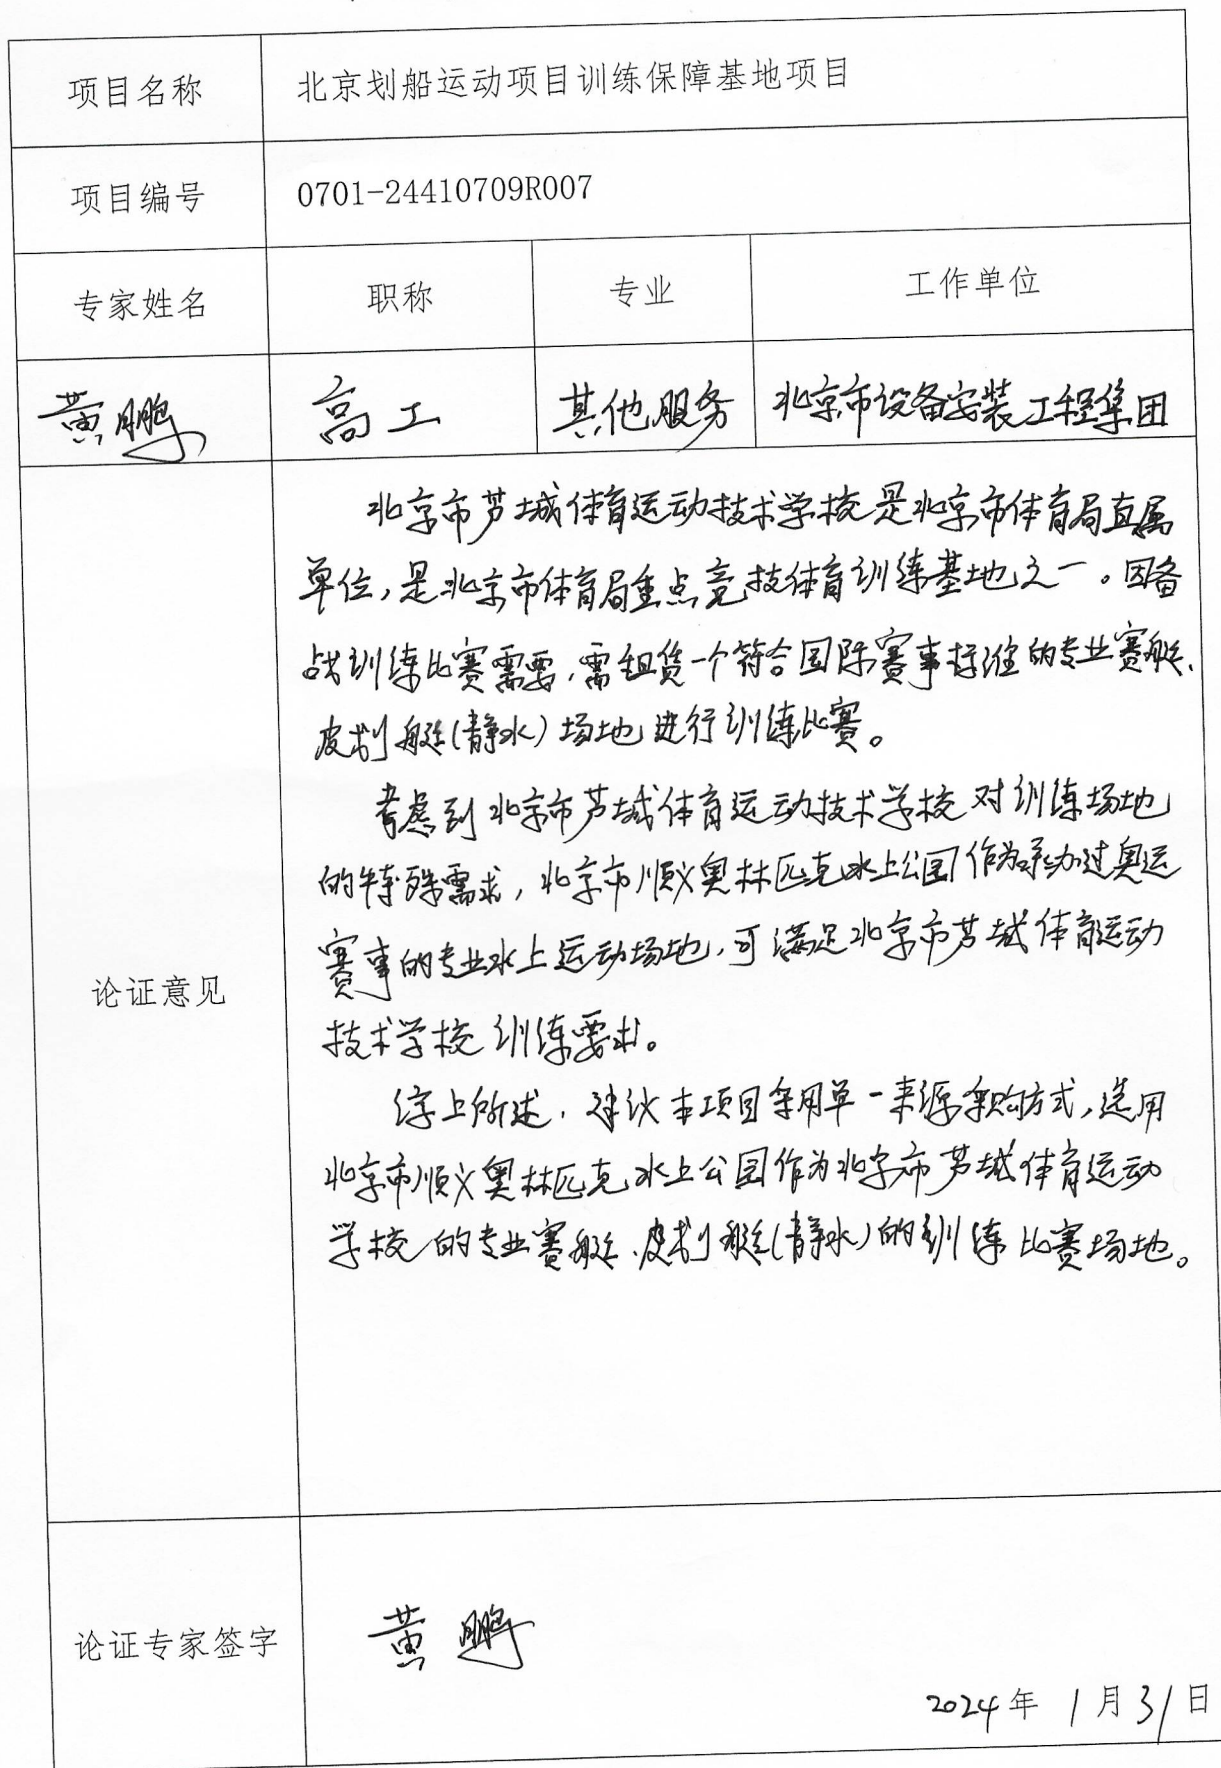 项目名称 北京划船运动项目训练保障基地项目
项目编号 0701-24410709R007
专家姓名 职称 专业 工作单位
黄鹏 高工 其他服务 北京市设备安装工程集团
北京市芦城体育运动技术学校是北京市体育局直属
单位,是北京市体育局重点竞技体育训练基地之一。因备
战训练比赛需要,需租赁一个符合国际赛事标准的专业赛艇、
皮划艇(静水)场地进行训练比赛。
考虑到北京市芦城体育运动技术学校对训练场地
的特殊需求,北京市顺义奥林匹克水上公园作为承办过奥运
论证意见
赛事的专业水上运动场地,可满足北京市芦城体育运动
技术学校训练要求。
综上所述,建议本项目采用单一来源采购方式,选用
北京市顺义奥林匹克水上公园作为北京市芦城体育运动
学校的专业赛艇、皮划艇(静水)的训练比赛场地。
论证专家签字 黄鹏
2024年1月31日